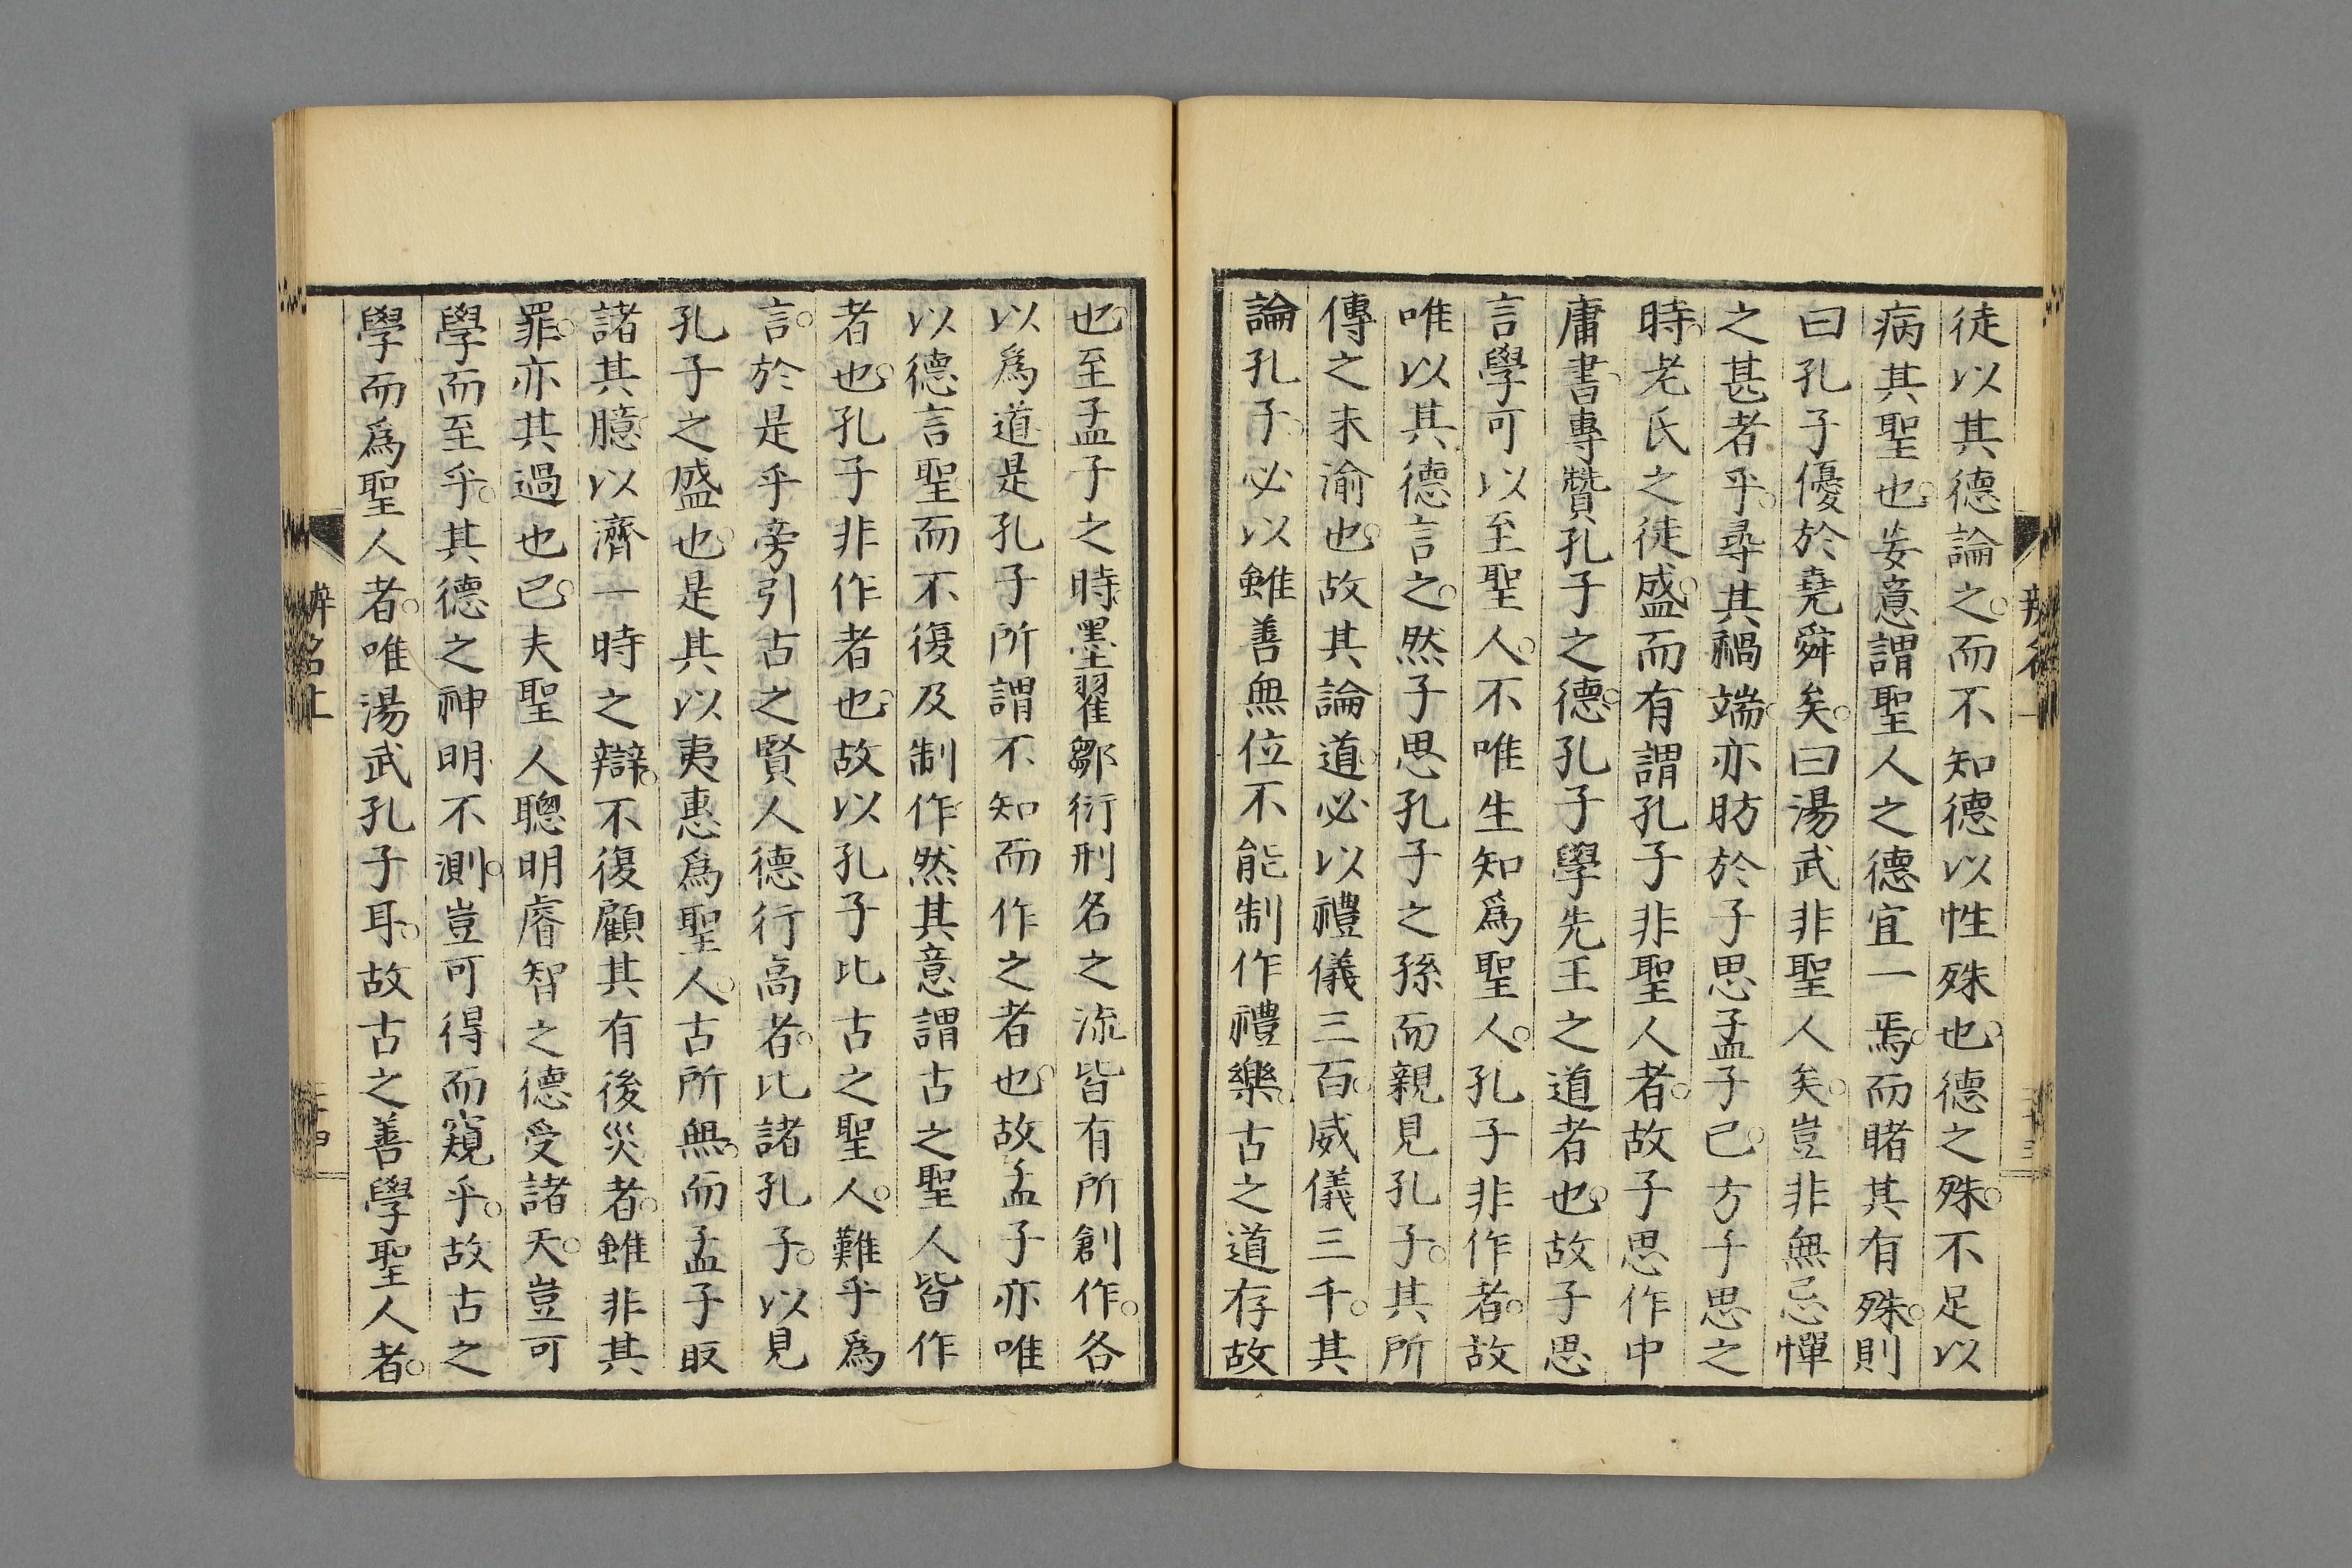 徒以其德論之。而不知德以性殊也。德之殊。不足以
病其聖也。妄意謂聖人之德宜一焉。而睹其有殊。則
曰孔子優於堯舜矣。曰湯武非聖人矣。豈非無忌憚
之甚者乎。尋其禍端。亦昉於子思孟子已。方子思之
時。老氏之徒盛。而有謂孔子非聖人者。故子思作中
庸書。專贊孔子之德。孔子學先王之道者也。故子思
言學可以至聖人。不唯生知爲聖人。孔子非作者。故
唯以其德言之。然子思孔子之孫而親見孔子。其所
傳之未渝也。故其論道。必以禮儀三百。威儀三千。其
論孔子。必以雖善無位不能制作禮樂。古之道存故
也。至孟子之時。墨翟鄒衍刑名之流皆有所創作。各
以爲道。是孔子所謂不知而作之者也。故孟子亦唯
以德言聖。而不復及制作。然其意謂古之聖人皆作
者也。孔子非作者也。故以孔子比古之聖人。難乎爲
言。於是乎旁引古之賢人德行高者。比諸孔子。以見
孔子之盛也。是其以夷惠爲聖人。古所無。而孟子取
諸其臆。以濟一時之辯。不復顧其有後災者。雖非其
罪。亦其過也已。夫聖人聰明睿智之德受諸天。豈可
學而至乎。其德之神明不測。豈可得而窺乎。故古之
學而爲聖人者。唯湯武孔子耳。故古之善學聖人者。
辨名上